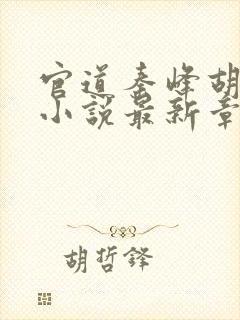 官道秦峰胡
小说最新章
胡哲铎